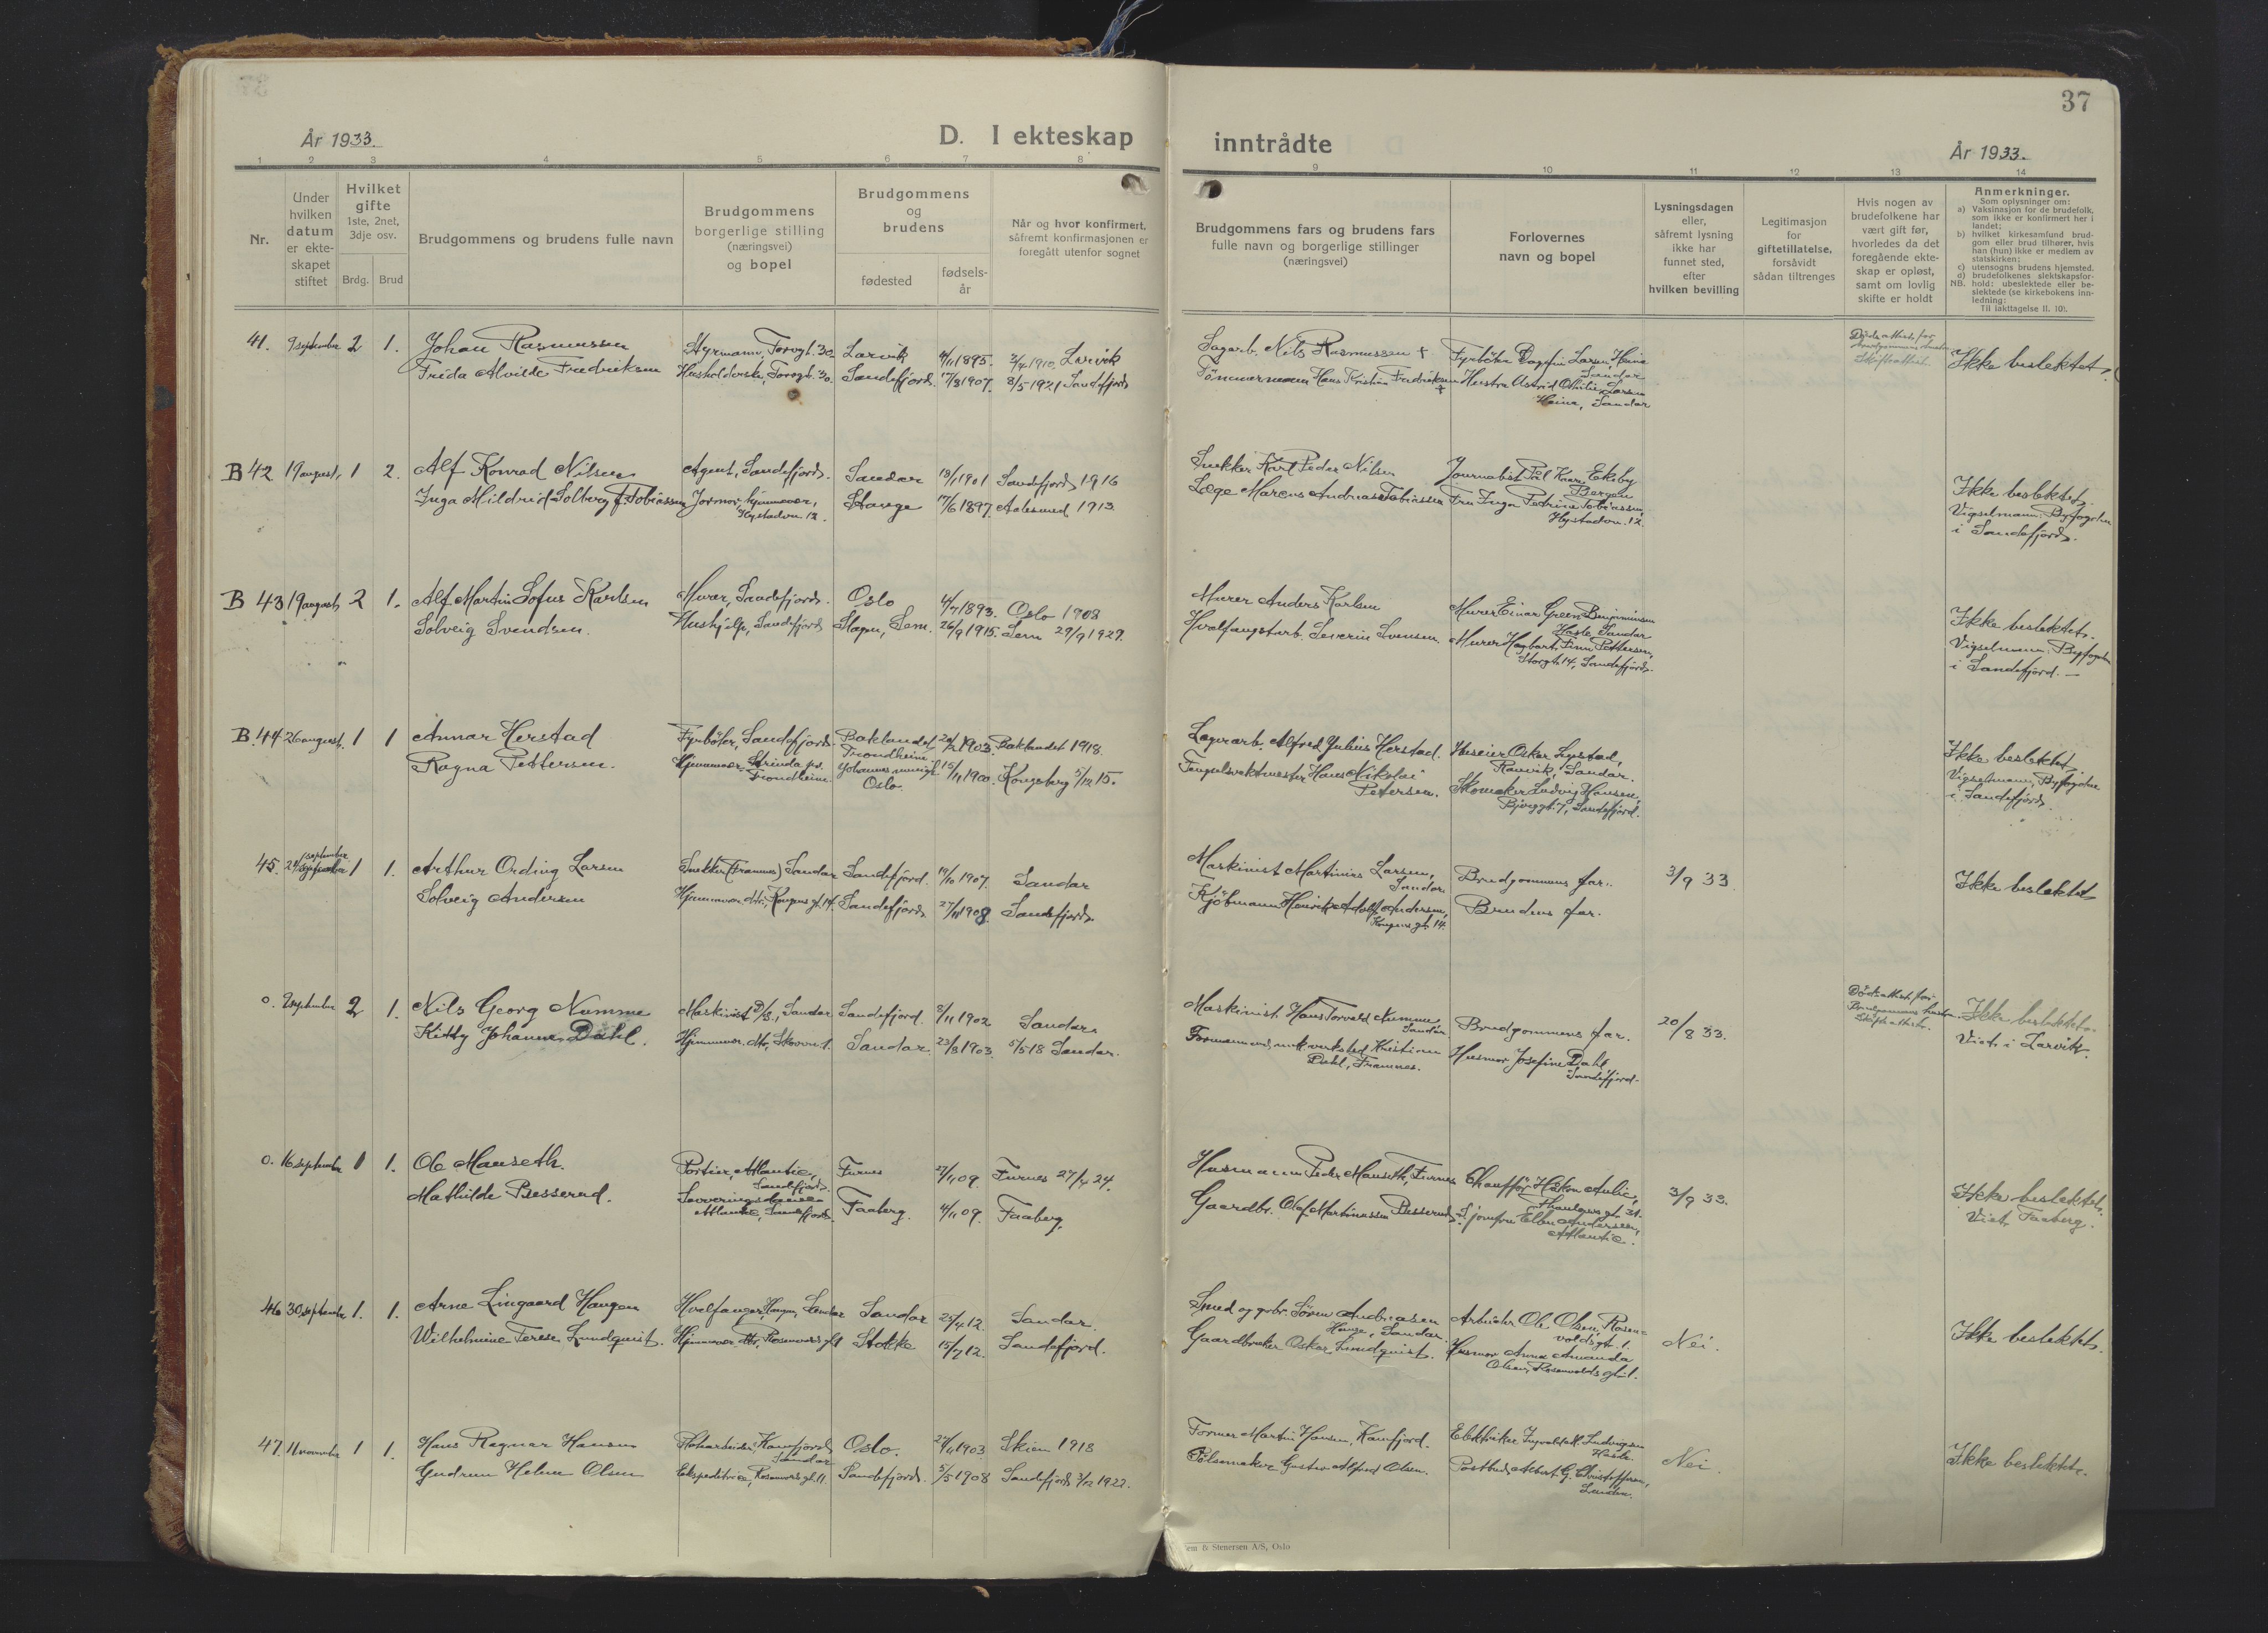 37
År 1933.
D. I ekteskap inntrådte
År 1933.
1 2 3 4 5 6 7 8 9 10 11 12 13 14
Nr.
Under hvilken datum er ekteskapet stiftet
Hvilket gifte 1ste, 2net, 3dje osv.
Brdg. Brud
Brudgommens og brudens fulle navn
Brudgommens borgerlige stilling (næringsvei) og bopel
Brudgommens og brudens
fødested
fødsels-år
Når og hvor konfirmert, såfremt konfirmasjonen er foregått utenfor sognet
Brudgommens fars og brudens fars fulle navn og borgerlige stillinger (næringsvei)
Forlovernes navn og bopel
Lysningsdagen eller, såfremt lysning ikke har funnet sted, efter hvilken bevilling
Legitimasjon for giftetillatelse, forsåvidt sådan tiltrenges
Hvis nogen av brudefolkene har vært gift før, hvorledes da det foregående ekteskap er opløst, samt om lovlig skifte er holdt
Anmerkninger.
Som oplysninger om:
a) Vaksinasjon for de brudefolk, som ikke er konfirmert her i landet;
b) hvilket kirkesamfund brudgom eller brud tilhører, hvis han (hun) ikke er medlem av statskirken;
c) utensogns brudens hjemsted.
d) brudefolkenes slektskapsforhold: ubeslektede eller beslektede (se kirkebokens innledning:
NB.
Til iakttagelse II. 10).
41. 9 september 2 1. Johan Rasmussen Styrmann, Torvgt. 30 Larvik 4/11 1895. 3/4 1910, Larvik Sagarb. Nils Rasmussen † Fyrbøter Dagfin Larsen, Heine Sandar
Frida Alvilde Fredriksen Husholderske, Torvgt. 30. Sandefjord. 17/8 1907. 8/5 1921 Sandefjord Tömmermann Hans Kristian Fredriksen † Hustru Astrid Othilie Larsen Heine, Sandar
Skifteattest Ikke beslektet.
B 42 19 august, 1 2. Alf Konrad Nilsen Agent, Sandefjord. Sandar 13/1 1901 Sandefjord 1916 Snekker Karl Peder Nilsen Journalist Pål Knare Eksby Bergen
Inga Mildrid Solberg f. Tobiassen Jormor, hjemmevær, Hystadvn. 12. Stange 17/6 1897. Aalesund 1913 Læge Marcus Andreas Tobiassen Fru Inga Petrine Tobiassen, Hystadvn. 12.
Ikke beslektet.
Vigselmann: Byfogden
i Sandefjord.
B 43 19 august 2 1. Alf Martin Sofus Karlsen Murer, Sandefjord. Oslo 4/7 1893. Oslo 1908 Murer Anders Karlsen Murer Einar Green Benjaminsen Hasle, Sandar
Solveig Svendsen. Hushjelp, Sandefjord Slagen, Sem. 26/9 1915. Sem 29/9 1929. Hvalfangstarb. Severin Svensen. Murer Hagbart Finn Pettersen, Storgt. 14, Sandefjord.
Ikke beslektet.
Vigselmann: Byfogden
i Sandefjord. —
B. 44 26 august. 1 1 Annar Herstad Fyrbøter, Sandefjord. Baklandet, Trondheim 1903. Baklandet 1918. Lagerarb. Alfred Julius Herstad. Huseier Oskar Lystad, Ranvik, Sandar.
Ragna Pettersen. Hjemmevær, Strinda pr. Trondheim. Johannes menigh. Oslo. 15/11 1900. Kongsberg 3/12 15. Fengselsvaktmester Hans Nikolai Petersen. Skomaker Ludvig Hansen, Bjerggt. 7, Sandefjord.
Ikke beslektet
Vigselmann, Byfogden
i Sandefjord.
45. september 1 1. Arthur Ording Larsen Snekker (Framnæs) Sandar Sandefjord. 19/10 1907. Sandar Maskinist Martinius Larsen, Sandar. Brudgommens far. 3/9 33.
Solveig Andersen Hjemmevær. dtr., Kongens gt. 14. Sandefjord. 27/11 1908. Sandefjord Kjöbmann Henrik Adolf Andersen, Kongens gt. 14. Brudens far.
Ikke beslektet
0. 9 september 2 1. Nils Georg Numme Maskinist D/S., Sandar Sandefjord. 8/11 1902 Sandar Maskinist Hans Torvald Numme Sandar Brudgommens far. 20/8 33.
Kitty Johanne Dahl. Hjemmevær. dtr., Skovvn 1. Sandar. 23/8 1903. 5/5 18 Sandar. Formann ved mek. verksted Kristian Dahl, Framnes. Husmor Josefine Dahl, Sandefjord.
Ikke beslektet.
Viet i Larvik.
0. 16 september 1 1. Ole Mauseth. Portier, Atlantic, Sandefjord. Furnes 27/1 09. Furnes 27/4 24. Husmann Peder Mauseth, Furnes Chauffør Håkon Aulie, Thaulows gt. 31. 3/9 33.
Mathilde Besserud. Serveringsdame Atlantic, Sandefjord. Faaberg. 4/11 09. Faaberg. Gaardbr. Olaf Martinussen Besserud. Sjomfru Ellen Andersen, Atlantic.
Ikke beslektet.
Viet, Faaberg.
46 30 september 1. 1. Arne Lingaard Haugen Hvalfanger, Haugen, Sandar Sandar 25/4 12. Sandar. Smed og gbr. Sören Andreasen Sandar. Arbeider Ole Olsen, Rosenvoldsgt. 1. Nei.
Wilhelmine Terese Lundquist. Hjemmevær. dtr., Rosenvolds gt 1 Stokke 15/7 12. Sandefjord. Gaardbruker Oskar Lundquist. Husmor Anna Amanda Olsen, Rosenvolds gt. 1.
Ikke beslektet.
47. 11 november 1 1. Hans Ragnar Hansen Kamfjord Sandar Oslo. 27/11 1903 Skien 1918 Former Martin Hansen, Kamfjord. Elektriker Ingvald Ludvigsen Hasle. Nei.
Gudrun Helene Olsen Ekspeditrice, Rosenvolds gt. 11 Sandefjord. 5/5 1908 Sandefjord 3/12 1922. Pölsemaker Gustav Alfred Olsen. Postbud Albert G. Christoffersen, Lunden.
Ikke beslektet.
em & Stenersen A/S, Oslo